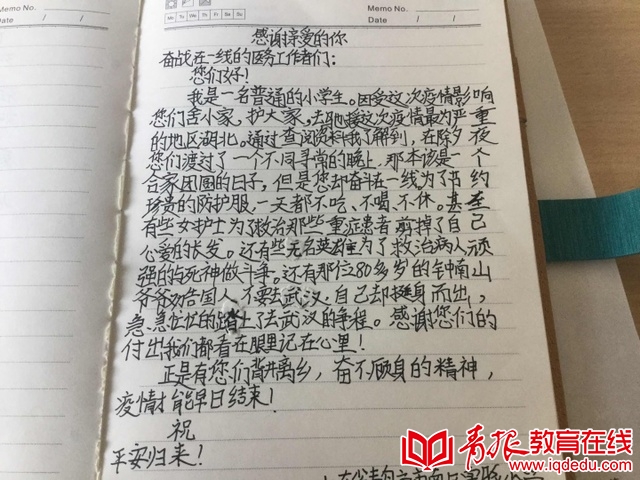 Memo No.
Date / /
Mo Tu We Th Fr Sa Su
Memo No.
Date / /
感谢亲爱的你
奋战在一线的医务工作者们：
您们好！
我是一名普通的小学生。因受这次疫情影响
您们舍小家，护大家，去驰援这次疫情最为严重
的地区湖北。通过查阅资料我了解到，在除夕夜
您们渡过了一个不同寻常的晚上，那本该是一个
合家团圆的日子，但是您却奋斗在一线，为了节约
珍贵的防护服，一天都不吃、不喝、不休。甚至
有些女护士为了救治那些重症患者剪掉了自己
心爱的长发。还有些无名英雄为了救治病人顽
强的与死神做斗争。还有那位80多岁的钟南山
爷爷劝告国人，不要去武汉，自己却挺身而出，
急急忙忙的踏上了去武汉的争程。感谢您们的
付出我们都看在眼里记在心里！
正是有您们背井离乡，奋不顾身的精神，
疫情才能早日结束！
祝
平安归来！
青报教育在线
www.iqdedu.com